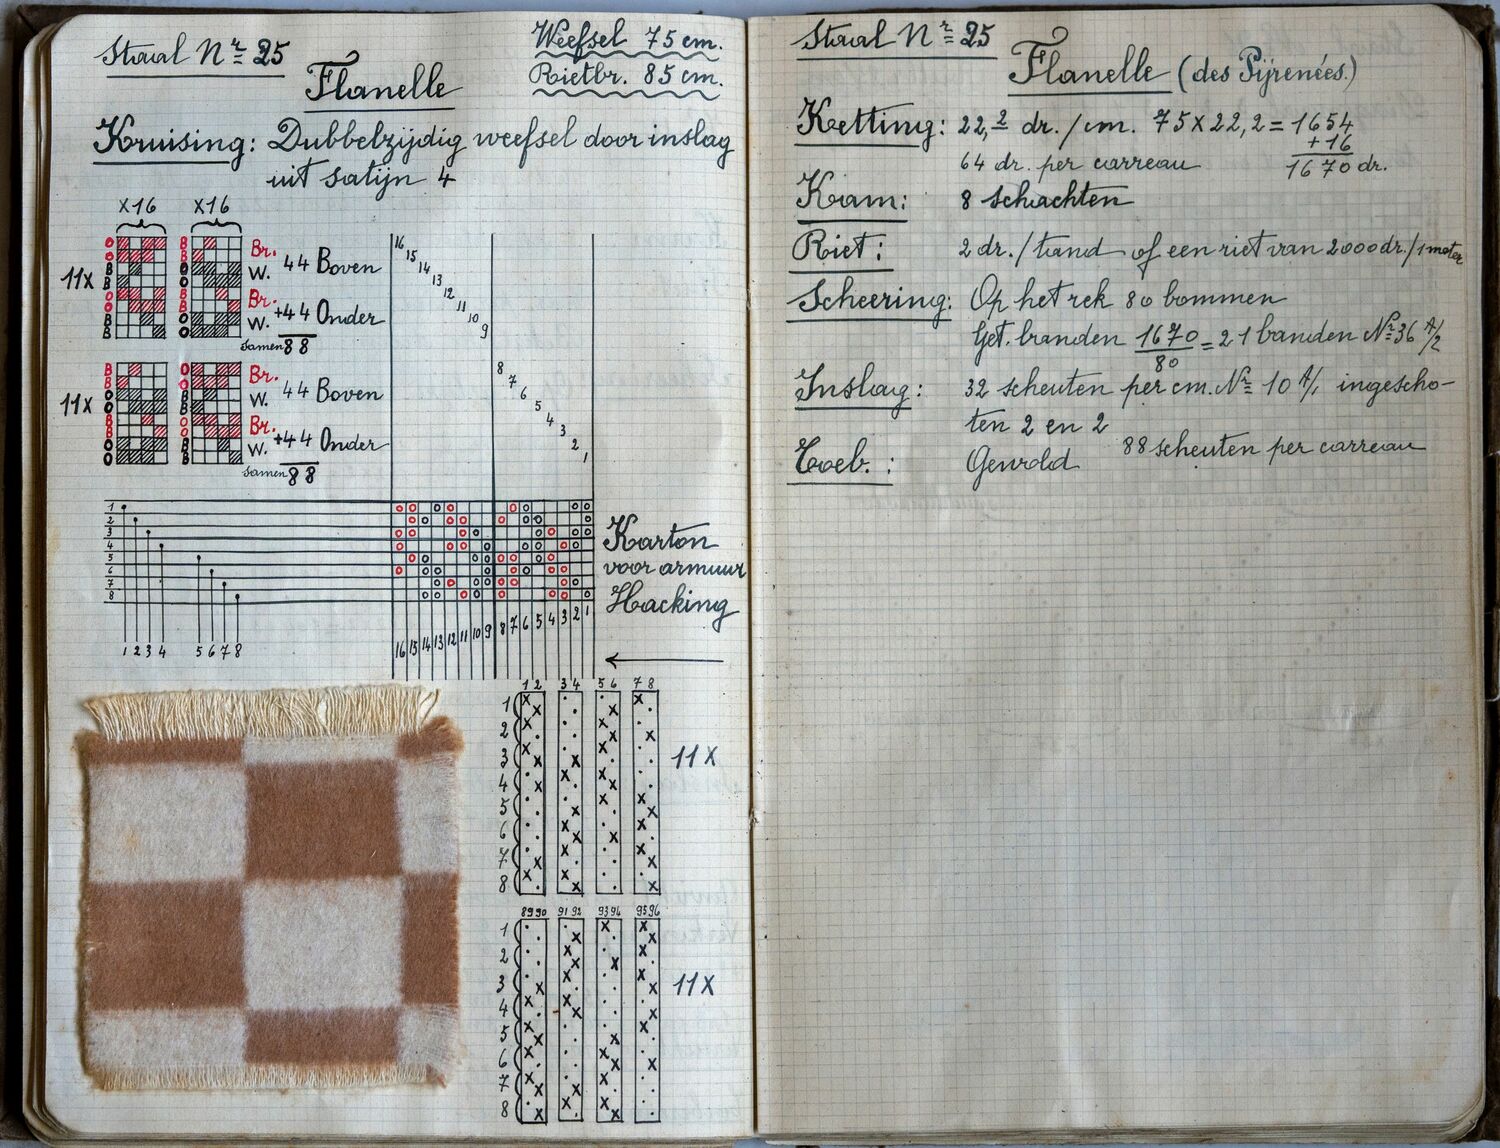 Staal Nr 25
Weefsel 75 cm.
Rietbr. 85 cm.
Flanelle
Kruising: Dubbelzijdig weefsel door inslag
uit satijn 4
X16 X16
11X
O O B B O O B B
B B O O B B O O
Br. 44 Boven
W.
Br. +44 Onder
W.
Samen 88
11X
B B O O B B O O
O O B B O O B B
Br. 44 Boven
W.
Br. +44 Onder
W.
Samen 88
16
15
14
13
12
11
10
9
8
7
6
5
4
3
2
1
1
2
3
4
5
6
7
8
Karton
voor armuur
Hacking
16 15 14 13 12 11 10 9 8 7 6 5 4 3 2 1
1 2 3 4 5 6 7 8
1 2 3 4 5 6 7 8
1
2
3
4
5
6
7
8
11X
89 90 91 92 93 94 95 96
1
2
3
4
5
6
7
8
11X
Staal Nr 25
Flanelle (des Pijrenées.)
Ketting: 22,2 dr./cm. 75X22,2=1654
+16
64 dr. per carreau 1670 dr.
Kam: 8 schachten
Riet: 2 dr./tand of een riet van 2000 dr./1 meter
Scheering: Op het rek 80 bommen
Get. branden 1670/80 = 21 banden Nr 36 A/2
Inslag: 32 scheuten per cm. Nr 10 A/1 ingescho-
ten 2 en 2
88 scheuten per carreau
Toeb.: Gevold